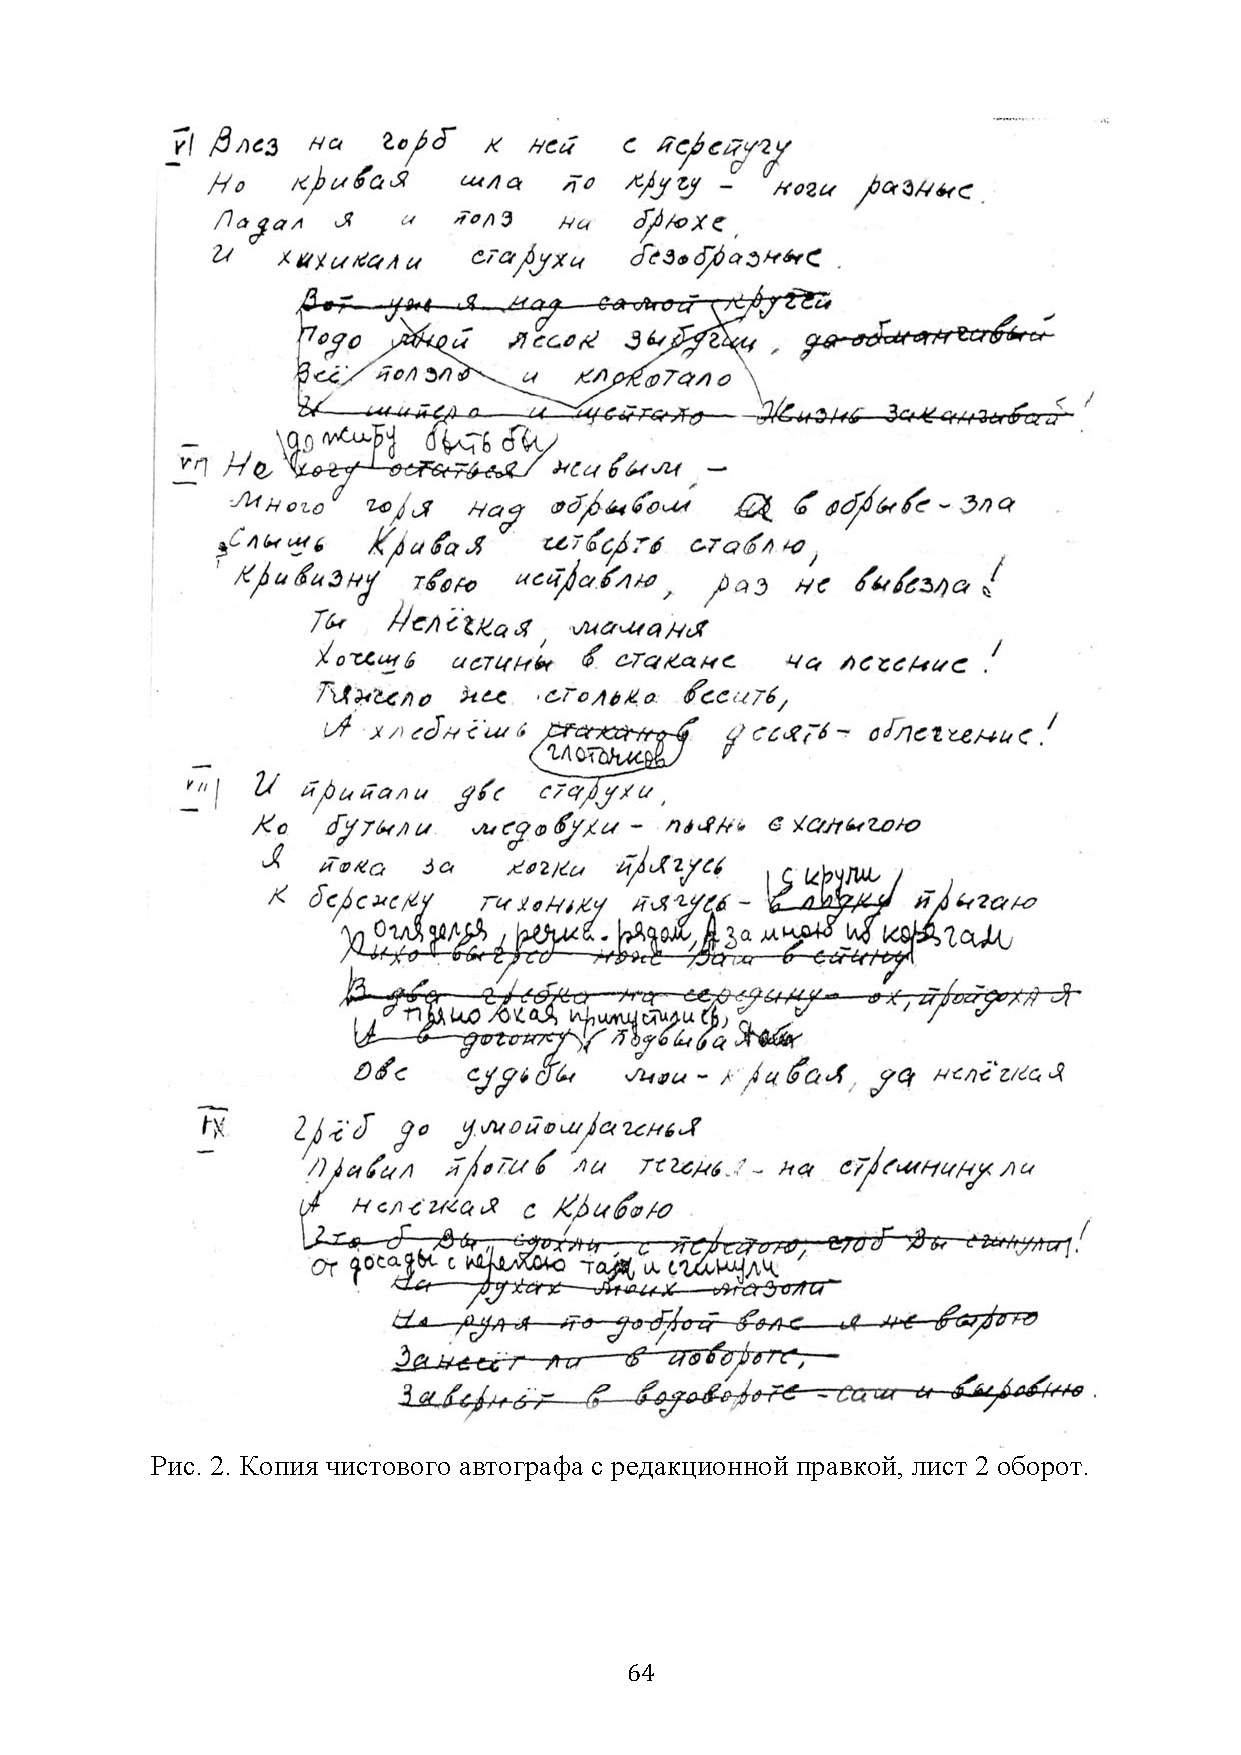 VI Влез на горб к ней с перепугу
Но кривая шла по кругу – ноги разные.
Падал я и полз на брюхе,
И хихикали старухи безобразные.
Вот уже я над самой кручей
Подо мной песок зыбучий, да обманчивый
Всё ползло и клокотало
И шипело и шептало Жизнь заканчивай!
до жиру быть бы
VII Не хогу остаться живым, –
Много горя над обрывом в обрыве – зла
Слышь Кривая четверть ставлю,
Кривизну твою исправлю, раз не вывезла!
Ты Нелёгкая, маманя
Хочешь истины в стакане на лечение!
Тяжело же столько весить,
А хлебнёшь стаканов десять – облегчение!
глоточков
VIII И припали две старухи,
Ко бутыли медовухи – пьянь с ханыгою
Я пока за кочки прягусь
с кручи
К бережку тихоньку пягусь – в лодку прыгаю
Огляделся, речка – рядом, А за мною по корягам
Лихо выгреб нож Вам в спину
В два гребка на середину – ох, пройдоха я
пьяно охая припустились,
А в догонку подвывая
Две судьбы мои – кривая, да нелёгкая
IX Грёб до умопомраченья
Правил против ли теченья – на стремнину ли
А нелёгкая с Кривою
Что б Вы сдохли, с перепою, чтоб Вы сгинули!
От досады с перепою там и сгинули
На руках моих мазоли
Но руля по доброй воле я не вырою
Занесёт ли в повороте,
Завернёт в водовороте – сам и выровню.
Рис. 2. Копия чистового автографа с редакционной правкой, лист 2 оборот.
64